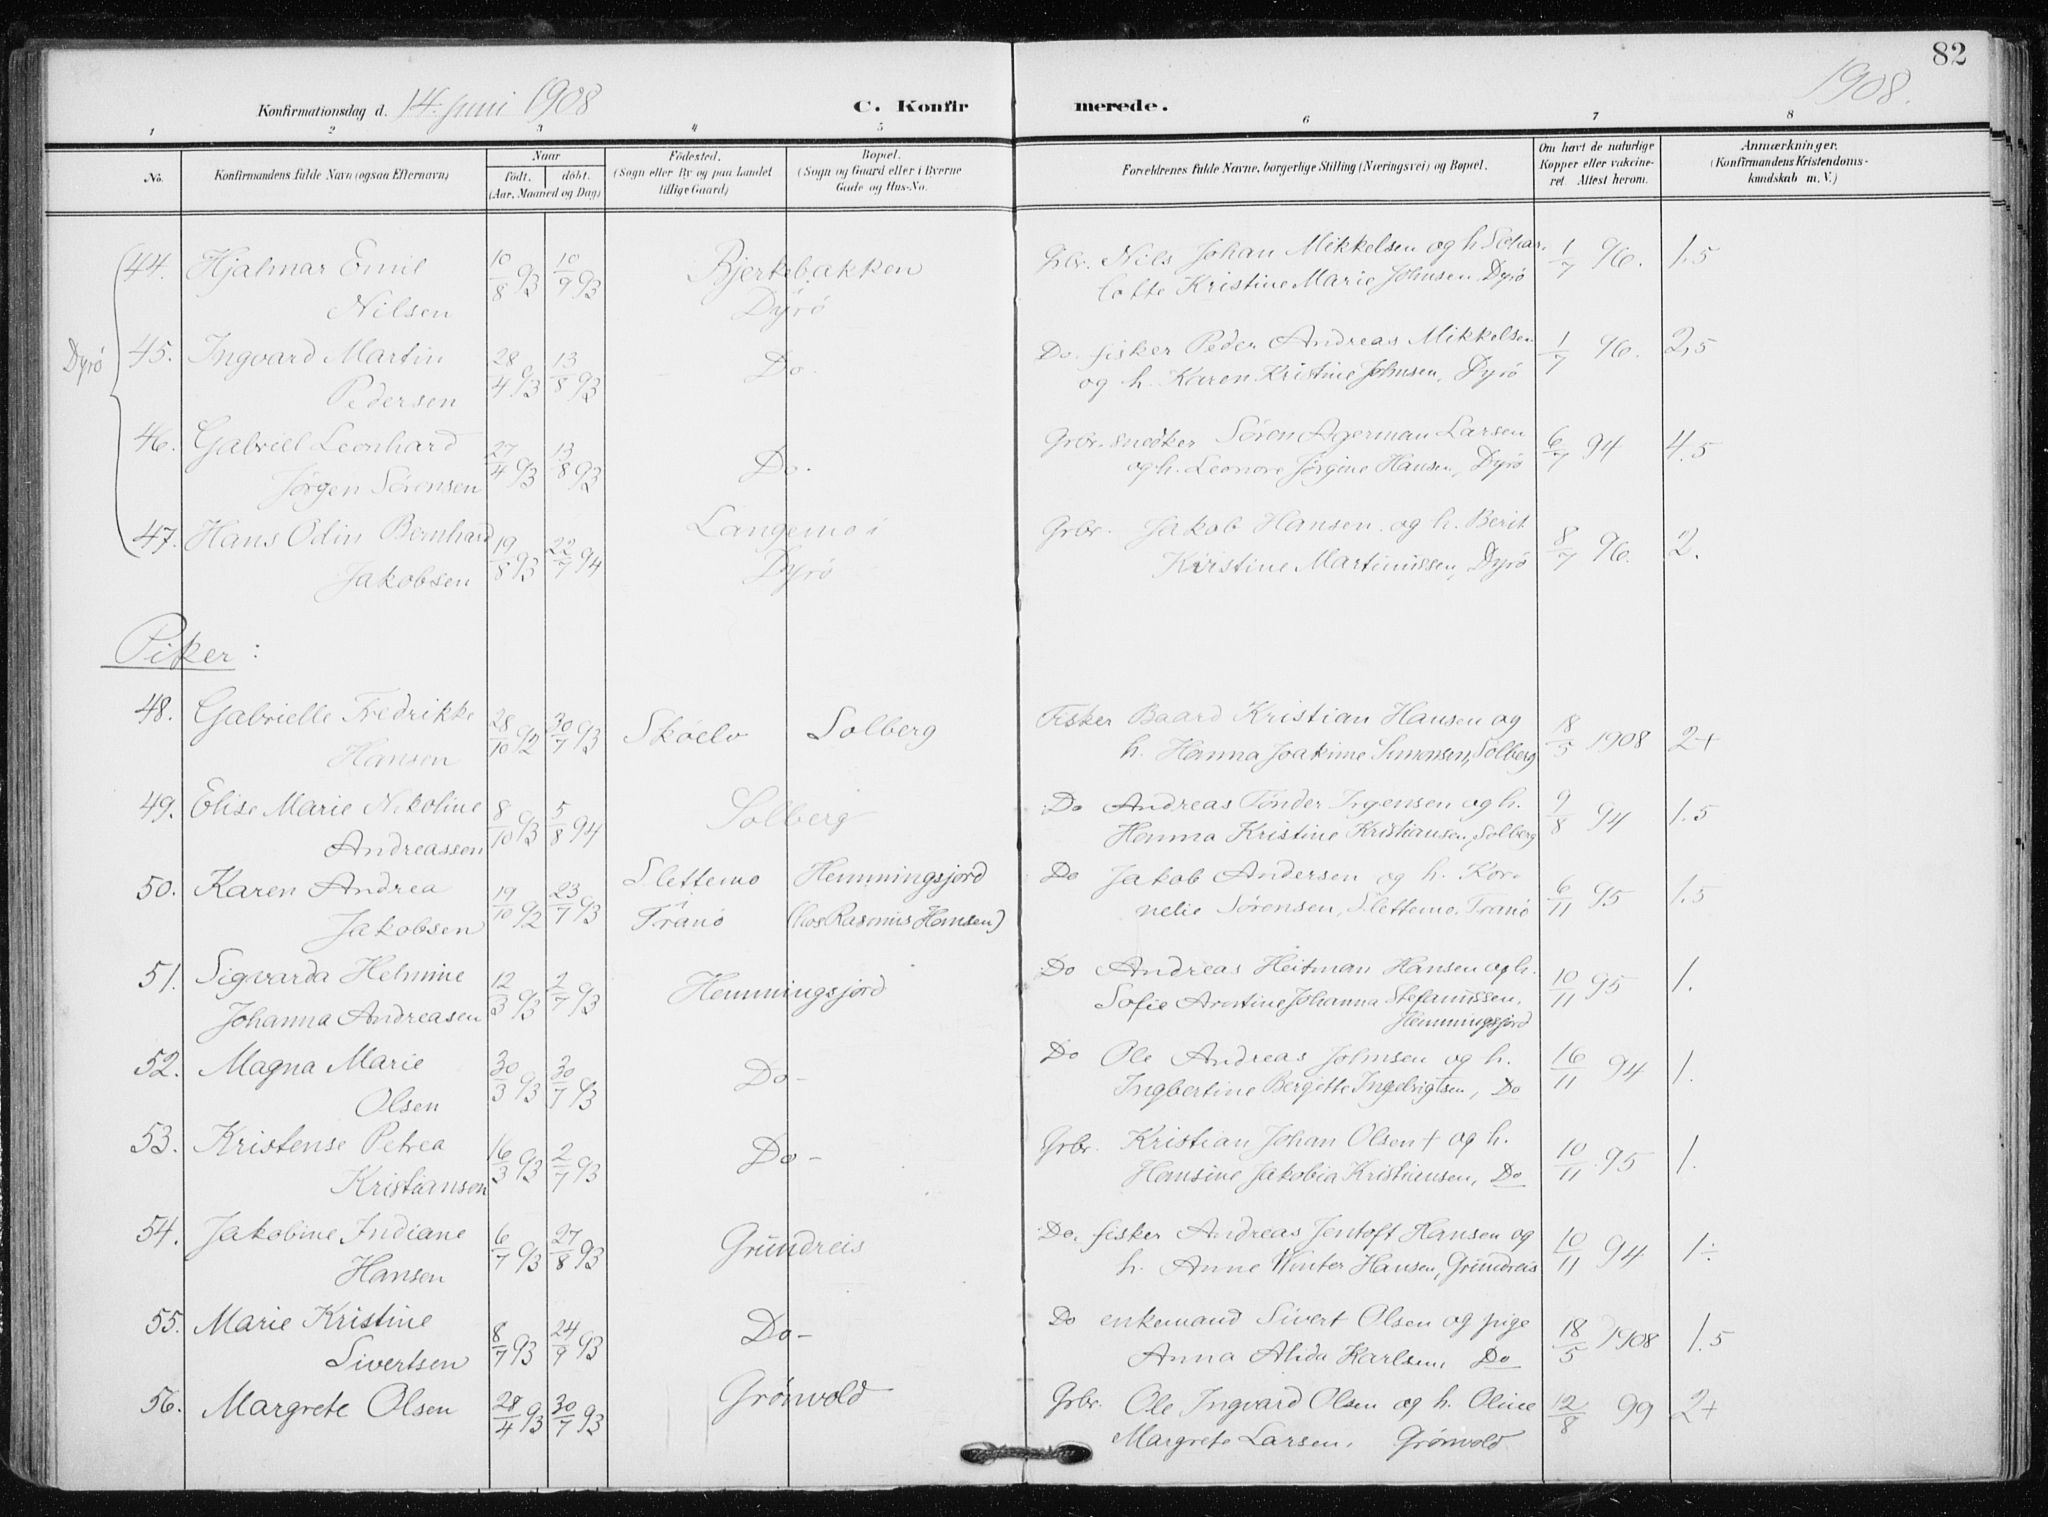 82
1908.
Konfirmationsdag d. 14. juni 1908 C. Konfirmerede.
1 2 3 4 5 6 7 8
No. Konfirmandens fulde Navn (ogsaa Efternavn) Naar født. døbt. (Aar, Maaned og Dag) Fødested. (Sogn eller By og paa Landet tillige Gaard) Bopæl. (Sogn og Gaard eller i Byerne Gade og Hus-No. Forældrenes fulde Navne, borgerlige Stilling (Næringsvei) og Bopæl. Om havt de naturlige Kopper eller vakcineret. Attest herom. Anmærkninger. (Konfirmandens Kristendomskundskab m. V.)
Dyrø
44. Hjalmar Emil 10/8 93 10/9 93 Bjerkebakken Grbr. Nils Johan Mikkelsen og h. Schar- 1/7 96. 1.5
Nilsen Dyrø lotte Kristine Marie Johnsen Dyrø
45. Ingvard Martin 28/4 93 13/8 93 Do. Do. fisker Peder Andreas Mikkelsen 1/7 96. 2,5
Pedersen og h. Karen Kristine Johnsen, Dyrø
46. Gabriel Leonhard 27/4 93 13/8 93 Do. Grbr. snedker Sören Agerman Larsen 6/7 94 4.5
Jørgen Sörensen og h. Leonore Jørgine Hansen, Dyrø
47. Hans Odin Bernhard 19/8 93 22/7 94 Langemo i Grbr. Jakob Hansen og h. Berit 8/7 96. 2.
Jakobsen Dyrø Kristine Martinussen, Dyrø
Piker:
48. Gabrielle Fredrikke 28/10 92 30/7 93 Sköelv Solberg Fisker Baard Kristian Hansen og 18/5 1908 2+
Hansen h. Hanna Joakime Simonsen, Solberg
49. Elise Marie Nikoline 8/10 93 5/8 94 Solberg Do Andreas Tönder Ingensen og h. 9/8 94 1.5
Andreassen Hanna Kristine Kristiansen, Solberg
50. Karen Andrea 19/10 92 23/7 93 Slettemo Hemmingsjord Do Jakob Andersen og h. Kor- 6/11 95 1.5
Jakobsen Tranö (hos Rasmus Hansen) nelie Sørensen, Slettemo, Tranö
51. Sigvarda Helmine 12/3 93 2/7 93 Hemmingsjord Do Andreas Heitman Hansen og h. 10/11 95 1.
Johanna Andreasen Sofie Arntine Johanna Stefanussen,
Hemmingsjord
52. Magna Marie 30/3 93 30/7 93 Do- Do Ole Andreas Johnsen og h. 16/11 94 1.
Olsen Ingbertine Bergitte Ingebrigtsen, Do
53. Kristense Petrea 16/3 93 2/7 93 Do- Grbr. Kristian Johan Olsen + og h. 10/11 95 1.
Kristiansen Hansine Jakobia Kristiansen, Do
54. Jakobine Indiane 6/7 93 27/8 93 Grundreis Do. fisker Andreas Jentoft Hansen og 10/11 94 1÷
Hansen h. Anne Winter Hansen, Grundreis
55. Marie Kristine 8/7 93 24/9 93 Do- Do enkemand Sivert Olsen og pige 18/5 1908 1.5
Sivertsen Anna Alida Karlsen, Do
56. Margrete Olsen 28/4 93 30/7 93 Grönvold Grbr. Ole Ingvard Olsen og h. Oline 12/8 99 2+
Margrete Larsen, Grönvold